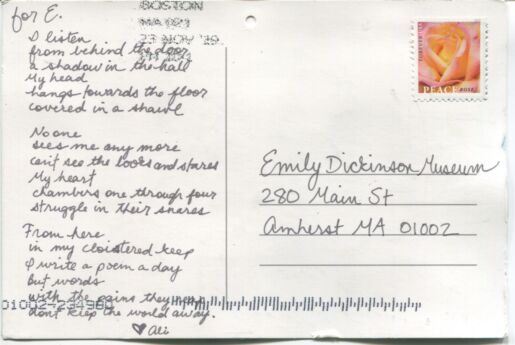 for E.
I listen
from behind the door
a shadow in the hall
My head
hangs towards the floor
covered in a shawl
No one
sees me any more
can't see the looks and stares
My heart
chambers one through four
struggle in their snares
From here
in my cloistered keep
I write a poem a day
But words
with the pains they
don't keep the world away.
♥ Ali
BOSTON
MA 021
23 NOV '19
FOREVER USA
PEACE 2018
Emily Dickinson Museum
280 Main St
Amherst MA 01002